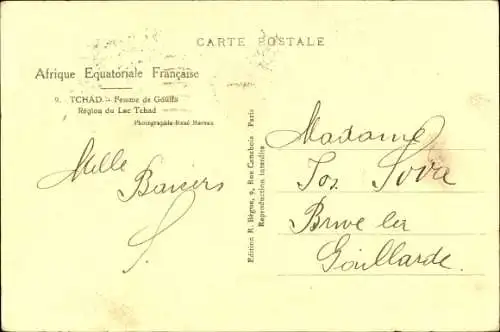 CARTE POSTALE
Afrique Equatoriale Française
9. TCHAD — Femme de Gouffa
Région du Lac Tchad
Photographie René Moreux
Mille
Baisers
S.
Edition R. Bègue, 9, Rue Cauchois Paris
Reproduction interdite
Madame
Jos
Brive la
Gaillarde.